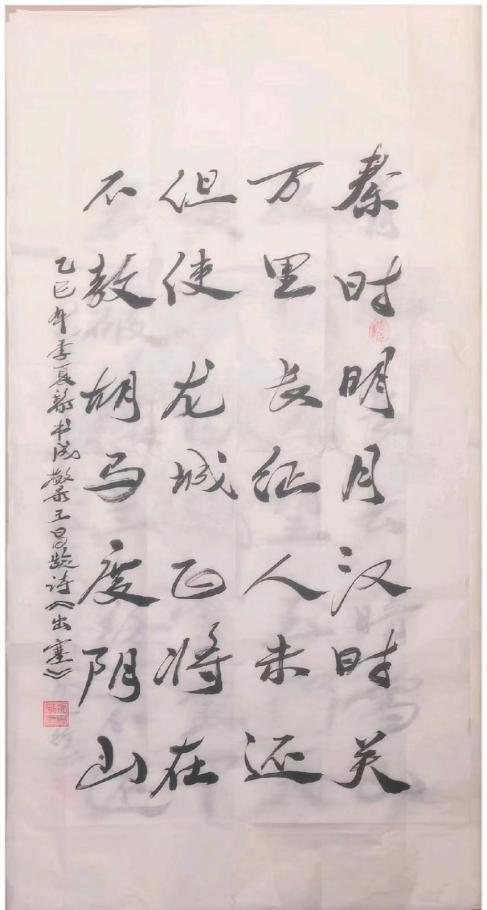 秦时明月汉时关
万里长征人未还
但使龙城飞将在
不教胡马度阴山
乙巳年季夏敬书 王昌龄诗《出塞》